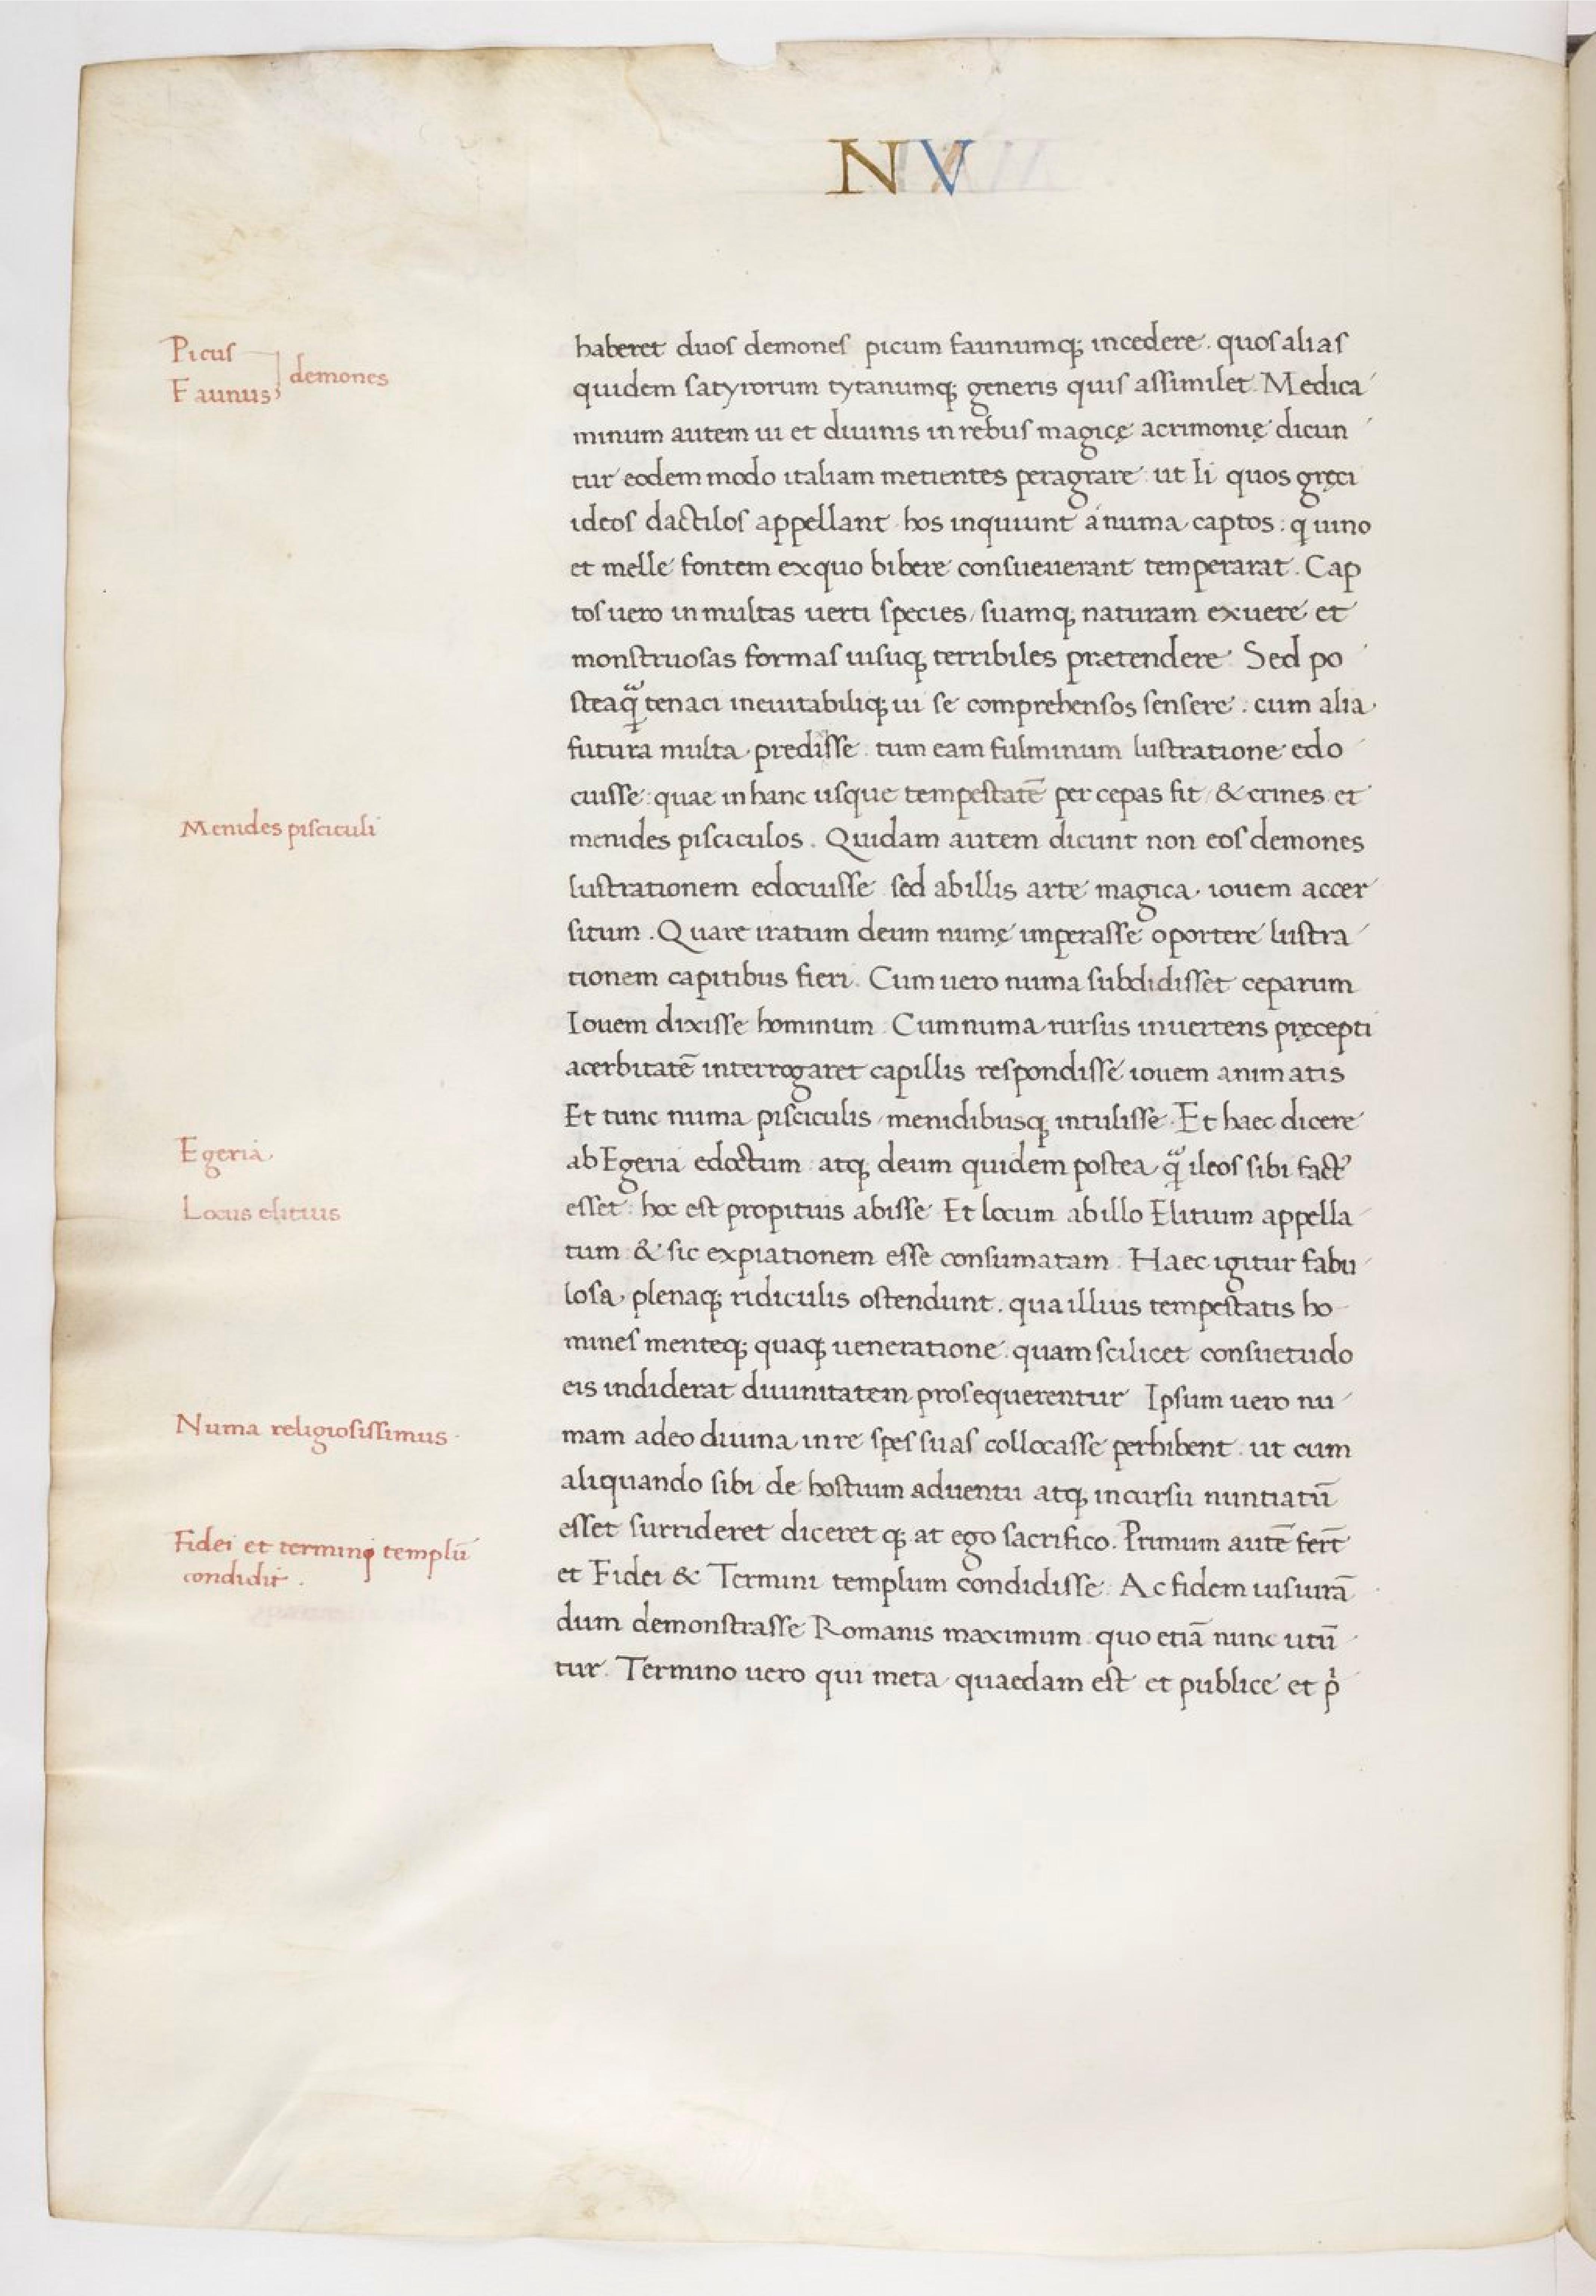 NV
Picus
Faunus
demones
haberet duos demones picum faunumq; incedere. quos alias
quidem satyrorum tytanumq; generis quis assimilet. Medica
minum autem ui et diuinis in rebus magicę acrimonię dicun
tur eodem modo italiam metientes peragrare ut Ii quos gręci
ideos dactilos appellant. hos inquiunt a numa captos: q uino
et melle fontem ex quo bibere consueuerant temperarat. Cap
tos uero in multas uerti species, suamq; naturam exuere et
monstruosas formas uisuq; terribiles prætendere. Sed po
steaq̃ tenaci ineuitabiliq; ui se comprehensos sensere: cum alia
futura multa predisse tum eam fulminum lustratione edo
cuisse: quae in hanc usque tempestatē per cepas fit, & crines et
Menides pisciculi
menides pisciculos. Quidam autem dicunt non eos demones
lustrationem edocuisse sed ab illis arte magica iouem accer
situm. Quare iratum deum numę imperasse oportere lustra
tionem capitibus fieri. Cum uero numa subdidisset ceparum
Iouem dixisse hominum. Cum numa rursus inuertens pręcepti
acerbitatē interrogaret capillis respondisse iouem animatis
Et tunc numa pisciculis, menidibusq; intulisse. Et haec dicere
Egeria
ab Egeria edoctum atq; deum quidem postea q̃ ileos sibi fact᾽
Locus elitius
esset: hoc est propitius abisse. Et locum ab illo Elitium appella
tum & sic expiationem esse consumatam. Haec igitur fabu
losa, plenaq; ridiculis ostendunt. qua illius tempestatis ho
mines menteq; quaq; ueneratione quam scilicet consuetudo
eis indiderat diuinitatem prosequerentur Ipsum uero nu
Numa religiosissimus
mam adeo diuina in re spes suas collocasse perhibent ut cum
aliquando sibi de hostium aduentu atq; incursu nuntiatū
esset surrideret diceret q; at ego sacrifico. Primum autē fert̄
Fidei et termini templū
condidit.
et Fidei & Termini templum condidisse. Ac fidem iusiurā
dum demonstrasse Romanis maximum quo etiā nunc utū
tur. Termino uero qui meta quaedam est et publice et p̓